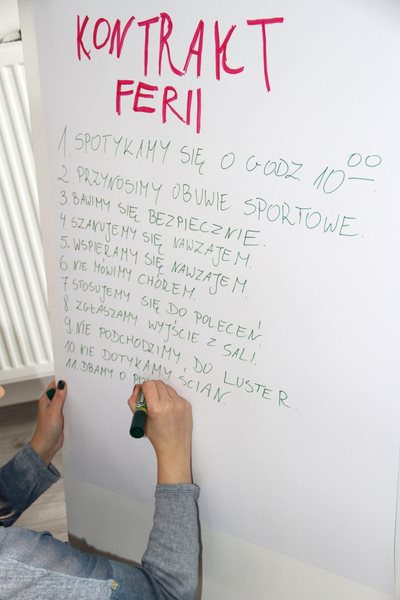 KONTRAKT
FERII
1. SPOTYKAMY SIĘ O GODZ. 10 00
2. PRZYNOSIMY OBUWIE SPORTOWE.
3. BAWIMY SIĘ BEZPIECZNIE.
4. SZANUJEMY SIĘ NAWZAJEM.
5. WSPIERAMY SIĘ NAWZAJEM.
6. NIE MÓWIMY CHÓREM.
7. STOSUJEMY SIĘ DO POLECEŃ.
8. ZGŁASZAMY WYJŚCIE Z SALI.
9. NIE PODCHODZIMY DO LUSTER.
10. NIE DOTYKAMY ŚCIAN.
11. DBAMY O